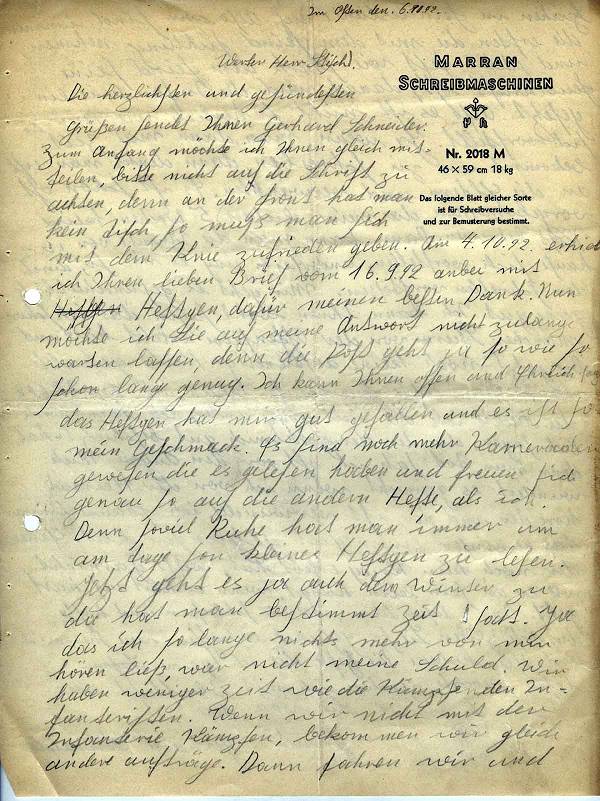 Im Osten den. 6.10.42.
Werter Herr
MARRAN
SCHREIBMASCHINEN
Nr. 2018 M
46 × 59 cm 18 kg
Das folgende Blatt gleicher Sorte
ist für Schreibversuche
und zur Bemusterung bestimmt.
Die herzlichsten und gesündesten
Grüßen sendet Ihnen Gerhard Schneider.
Zum Anfang möchte ich Ihnen gleich mit-
teilen, bitte nicht auf die Schrift zu
achten, denn an der Front hat man
kein Tisch, so muß man sich
mit dem Knie zufrieden geben. Am 4.10.42. erhielt
ich Ihren lieben Brief vom 16.9.42 anbei mit
Heftgen, dafür meinen besten Dank. Nun
möchte ich Sie auf meine Antwort nicht zulange
warten lassen, denn die Post geht ja so wie so
schon lang genug. Ich kann Ihnen offen und Ehrlich
das Heftgen hat mir gut gefallen und es ist so
mein Geschmack. Es sind noch mehr Kameraden
gewesen die es gelesen haben und freuen sich
genau so auf die andern Hefte, als ich.
Denn soviel Ruhe hat man immer um
am tage son kleines Heftgen zu lesen.
Jetzt geht es ja auch dem Winter zu
da hat man bestimmt zeit satt. Ja
das ich so lange nichts mehr von mir
hören ließ, war nicht meine Schuld. Wir
haben weniger zeit wie die Kämpfenden In-
fanteristen. Wenn wir nicht mit der
Infanterie Kämpfen, bekommen wir gleich
andere aufträge. Dann fahren wir und